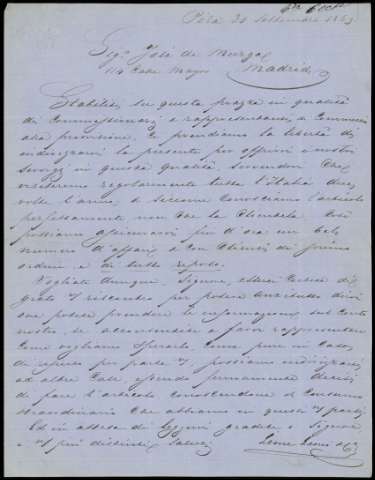 Pisa 30 Settembre 1863
Sigr José de Murga
114 Calle Mayor Madrid
Stabiliti su questa piazza in qualità
di Commissionarj e rappresentanti a Commissione
alla provvisione, ci prendiamo la libertà di
indirizzarvi la presente per offrirvi i nostri
servizj in questa qualità
visiteremo regolarmente tutta l'Italia due
volte l'anno, e siccome conosciamo l'articolo
perfettamente non che la Clientela così
possiamo assicurarvi fin d'ora un bel
numero d'affari e con Clienti di primo
ordine e di tutto riposo.
Vogliate dunque, Signore, essere cortese di
poter anzitutto dirvi
ove potete prendere le informazioni sul conto
nostro, di accordarci a favor
come vogliamo sperarlo come pure in caso
di rifiuto per parte possiamo indirizzarci
ad altre Case, essendo fermamente decisi
di fare l'articolo conoscendone il Consumo
straordinario che abbiamo in queste parti
Ed in attesa di leggervi graditevi Signore
i più distinti saluti